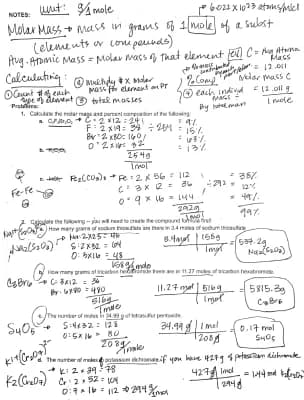 NOTES: unit: g/1 mole
→ 6.022 x 1023 atoms/molecul
Molar Mass → mass in grams of 1 mole of a subst
(elements or compounds)
Avg. Atomic Mass = Molar Mass of that element
C = Avg Atomic Mass
= 12.011
Molar mass C
= 12.011 g
1 mole
Calculating:
① Count # of each type of element
② multiply # x molar mass for element on PT
③ total masses
% Comp
④ each individ mass ÷ by total mass
Problems:
1. Calculate the molar mass and percent composition of the following:
C: 2 x 12 = 24
F: 2 x 19 = 38 ÷ 254
Br: 2 x 80 = 160
O: 2 x 16 = 32
254 g
1 mol
= 9%
= 15%
= 63%
= 13%
Fe-Fe
Fe2(CO3)3 → Fe: 2 x 56 = 112
C: 3 x 12 = 36 ÷ 292
O: 9 x 16 = 144
292 g
1 mol
= 38%
= 12%
= 49%
99%
2. Calculate the following – you will need to create the compound formula first!
a. How many grams of sodium thiosulfate are there in 3.4 moles of sodium thiosulfate
Na: 2 x 23 = 46
S: 2 x 32 = 64
O: 3 x 16 = 48
158 g/1 mole
3.4 mol
537.2 g
Na2(S2O3)
b. How many grams of tricarbon hexabromide there are in 11.27 moles of tricarbon hexabromide.
C3Br6
C: 3 x 12 = 36
Br: 6 x 80 = 480
516 g
1 mol
11.27 mol | 516 g
1 mol
= 5815.3 g
C3Br6
c. The number of moles in 34.99 g of tetrasulfur pentoxide.
S4O5
S: 4 x 32 = 128
O: 5 x 16 = 80
208 g/1 mole
34.99 g | 1 mol
208 g
= 0.17 mol
S4O5
K1+(Cr2O7)2-
d. The number of moles of potassium dichromate if you have 427 g of potassium dichromate
K2(Cr2O7)
K: 2 x 39 = 78
Cr: 2 x 52 = 104
O: 7 x 16 = 112 → 294 g/1 mol
427 g | 1 mol
294 g